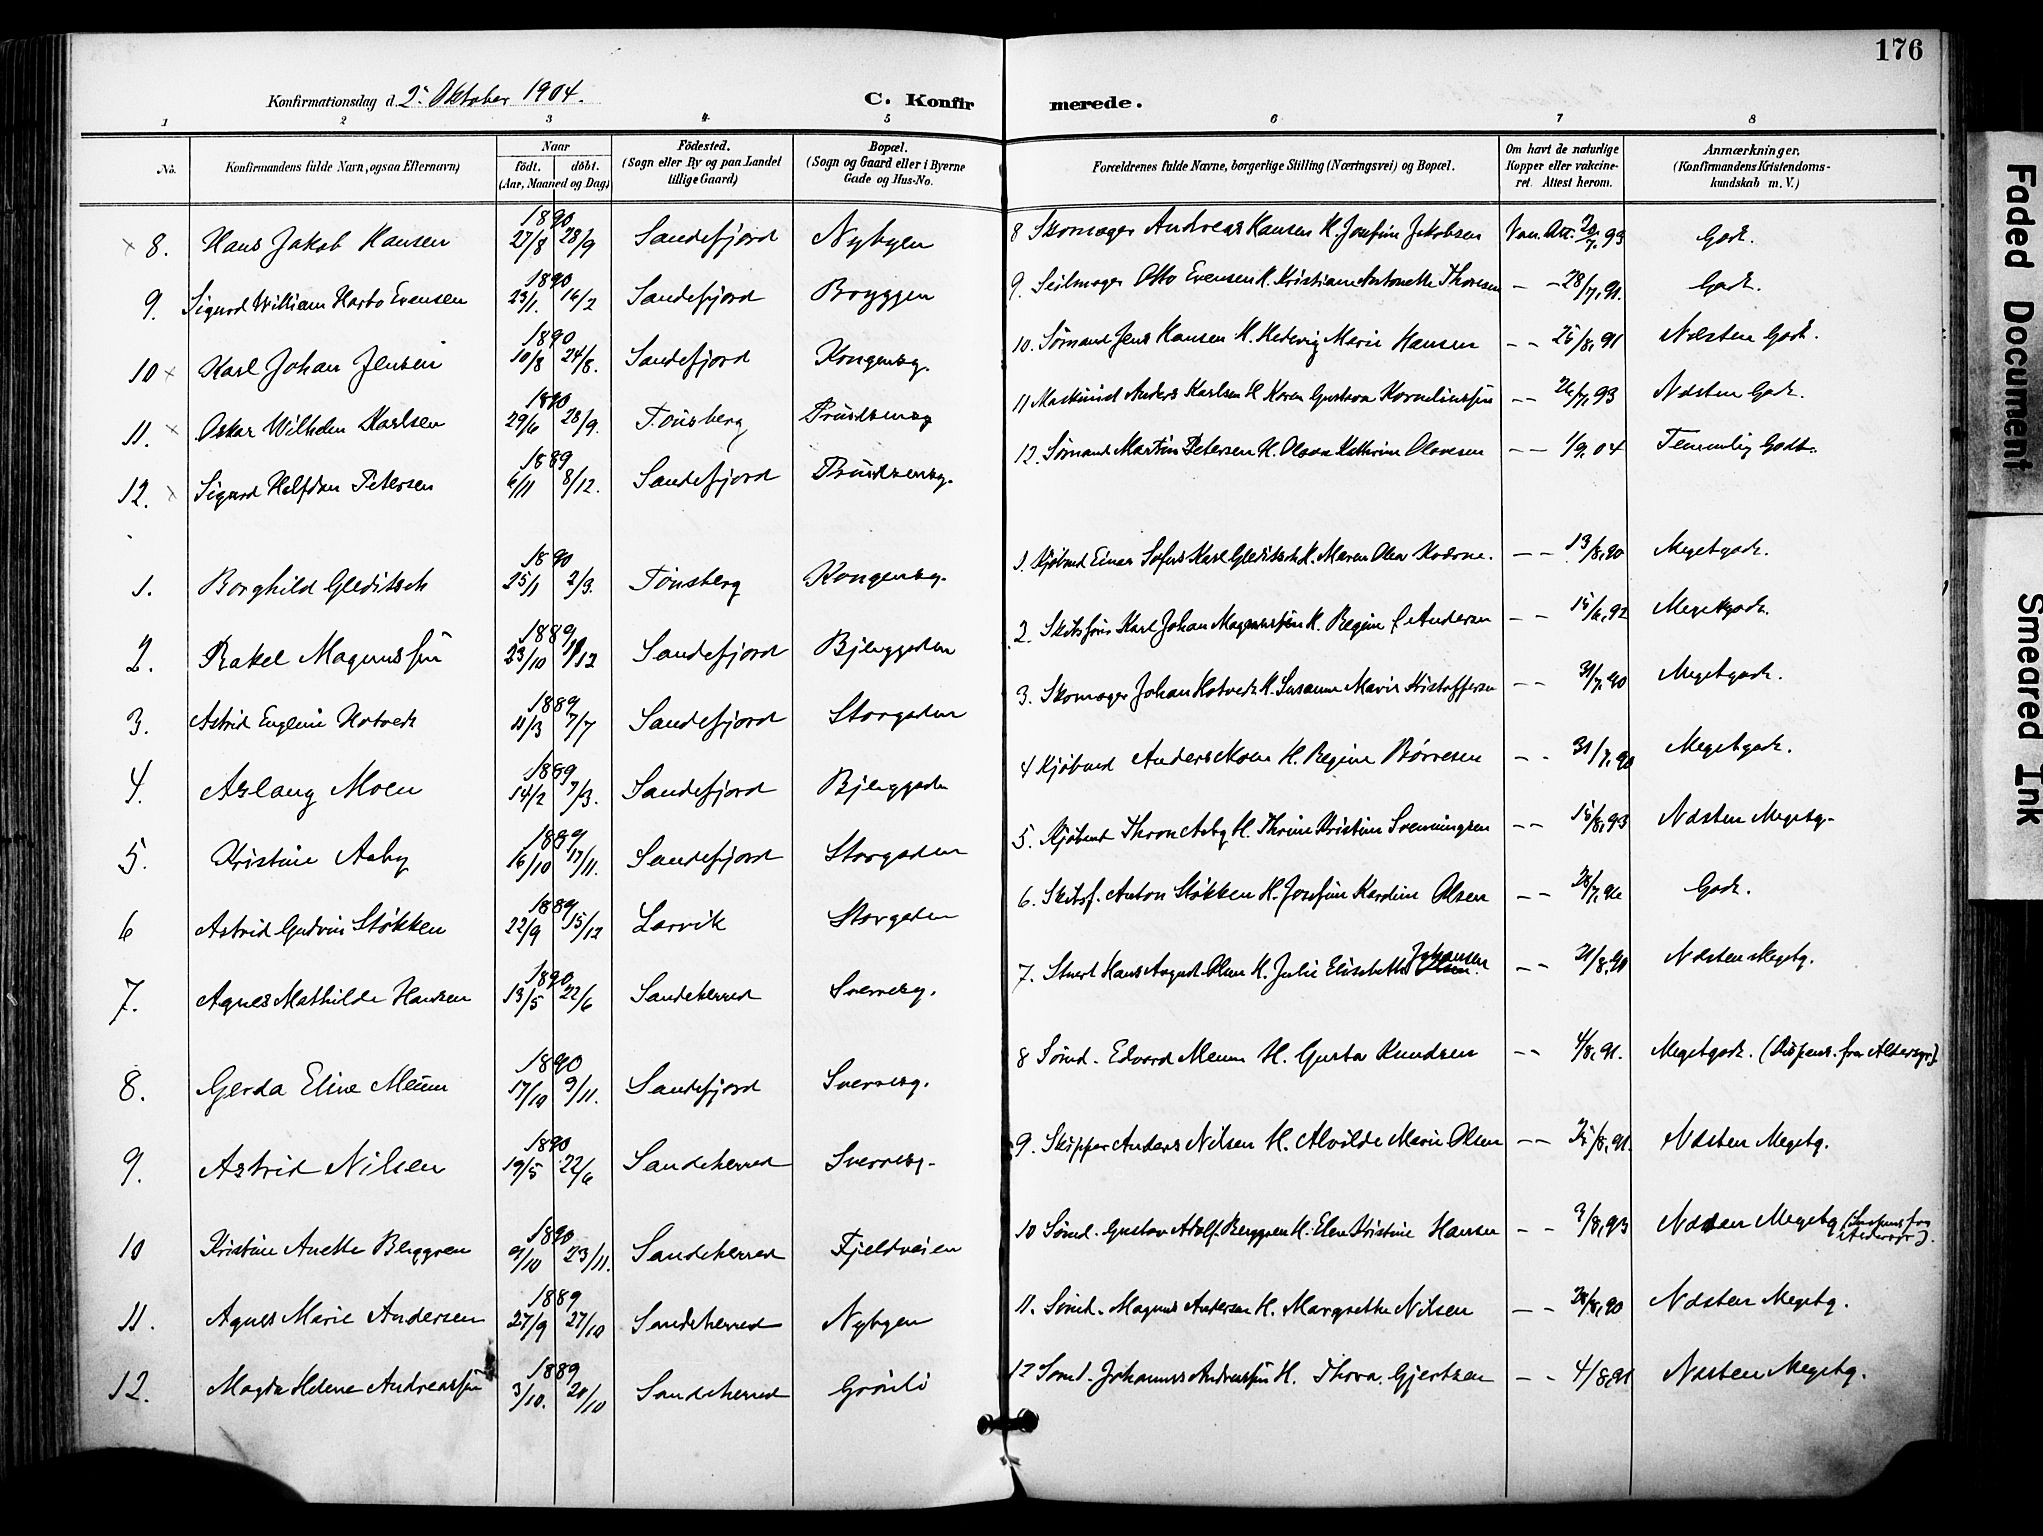 176
Konfirmationsdag d. 2. Oktober 1904.
C. Konfirmerede.
1 2 3 4 5 6 7 8
No.
Konfirmandens fulde Navn, ogsaa Efternavn)
Naar
födt. döbt.
(Aar, Maaned og Dag)
Födested.
(Sogn eller By og paa Landet tillige Gaard)
Bopæl.
(Sogn og Gaard eller i Byerne Gade og Hus-No.
Forældrenes fulde Navne, borgerlige Stilling (Næringsvei) og Bopæl.
Om havt de naturlige Kopper eller vakcineret. Attest herom.
Anmærkninger,
(Konfirmandens Kristendomskundskab m. V.)
× 8. Hans Jakob Hansen 1890 27/8 28/9 Sandefjord Nybyen 8 Skomager Andreas Hansen H. Josefine Jakobsen Vac. Att. 93 Godt.
9. Sigurd William Evensen 1890 23/1. 16/2 Sandefjord Bryggen 9. Seilmager Otto Evensen H. Kristiane Antonette Thoresen – – 28/7, 91. Godt.
10 × Karl Johan Jensen 1890 10/8 24/8. Sandefjord Kongensg. 10. Sømand Jens Hansen H. Hedevig Marie Hansen – – 25/8, 91 Næsten Godt.
11. × Oskar Wilhelm Karlsen 1890 29/6 28/9. Tønsberg 11 Maskinist Anders Karlsen H Karen Gustava Korneliussen – – 26/7, 93 Næsten Godt.
12. × Sigurd Halfdan Petersen 1889 6/11 8/12. Sandefjord 12. Sømand Martin Petersen H. Kathrine Olavesen – – 1/9, 04 Temmelig Godt.
1. Borghild Gleditsch 1890 25/1 2/3. Tønsberg Kongensg. 1. Kjøbmd Einar Sofus Karl Gleditsch H. Maren Olea – – 13/8, 90 Megetgodt.
2. Rakel Magnussen 1889 23/10 /12 Sandefjord Bjerggaden 2. Karl Johan Magnussen H. Regine Andersen – – 15/6, 92 Megetgodt.
3. Astrid Eugenie Hotvedt 1889 4/3 7/7 Sandefjord Storgaden 3. Skomager Johan Hotvedt H. Susanne Marie Kristoffersen – – 31/7, 90 Megetgodt.
4. Aslaug Moen 1889 14/2 7/3. Sandefjord Bjerggaden 4 Kjøbmd Anders Moen H. Regine Børresen – – 31/7, 90 Megetgodt.
5. Kristine Aaby 1889 16/10 17/11. Sandefjord Storgaden 5. Kjøbmd Thron Aaby H. Thrine Kristine Svenningsen – – 15/8, 93 Næsten Megetg.
6 Astrid Gudrun Støkken 1889 22/9 15/12 Larvik Storgaden 6. Skibsf. Anton Støkken H. Josefine Karoline Olsen – – 28/7, 96 Godt.
7. Agnes Mathilde Hansen 1890 13/5 22/6 Sandeherred Sverresg. 7. Stuert Hans August Olsen H. Julie Elisabeth Johansen – – 21/8, 91 Næsten Megetg.
8. Gerda Eline Meum 1890 17/10 9/11. Sandefjord Sverresg. 8 Sømd. Edvard Meum H. Gusta Knudsen – – 4/8, 91. Megetgodt. (Dispens. fra Aldersgr.)
9. Astrid Nilsen 1890 19/5 22/6 Sandeherred Sverresg. 9. Skipper Anders Nilsen H. Alvilde Marie Olsen – – /8, 91. Næsten Megetg.
10 Kristine Anette Berggren 1890 9/10 23/11. Sandeherred Fjeldveien 10 Sømd. Gustav Adolf Berggren H. Elen Kristine Hansen – – 3/8, 93 Næsten Megetg (Dispens fra Aldersgr.)
11. Agnes Marie Andersen 1889 27/9 27/10 Sandeherred Nybyen 11. Sømd. Magnus Andersen H. Margrethe Nilsen – – 28/8, 90 Næsten Megetg.
12. Magda Helene Andreassen 1889 3/10. 20/10 Sandeherred Grønli 12 Sømd. Johannes Andreassen H. Thora Gjertsen – – 4/8, 91 Næsten Megetg.
Faded Document
Smeared Ink